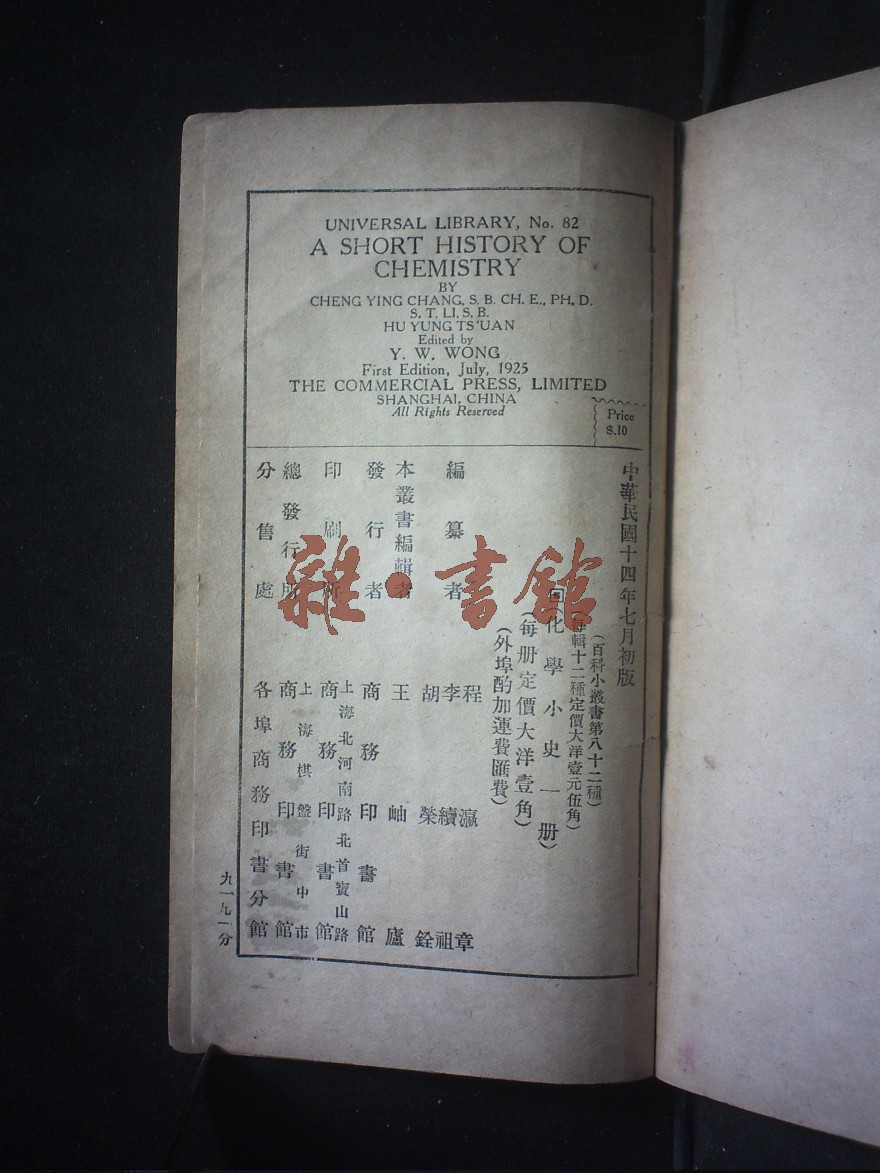 UNIVERSAL LIBRARY, No. 82
A SHORT HISTORY OF
CHEMISTRY
BY
CHENG YING CHANG, S. B. CH. E., PH. D.
S. T. LI, S. B.
HU YUNG TS'UAN
Edited by
Y. W. WONG
First Edition, July, 1925
THE COMMERCIAL PRESS, LIMITED
SHANGHAI, CHINA
All Rights Reserved
Price
$.10
中華民國十四年七月初版
(百科小叢書第八十二種)
(每輯十二種定價大洋壹元伍角)
化學小史一册)
(每册定價大洋壹角)
(外埠酌加運費匯費)
編纂者
程瀛章
李續祖
胡榮銓
本叢書編輯者 王岫廬
發行者 商務印書館
印刷所
上海北河南路北首寶山路
商務印書館
總發行所
上海棋盤街中市
商務印書館
分售處 各埠商務印書分館
九一九一分
雜·書館